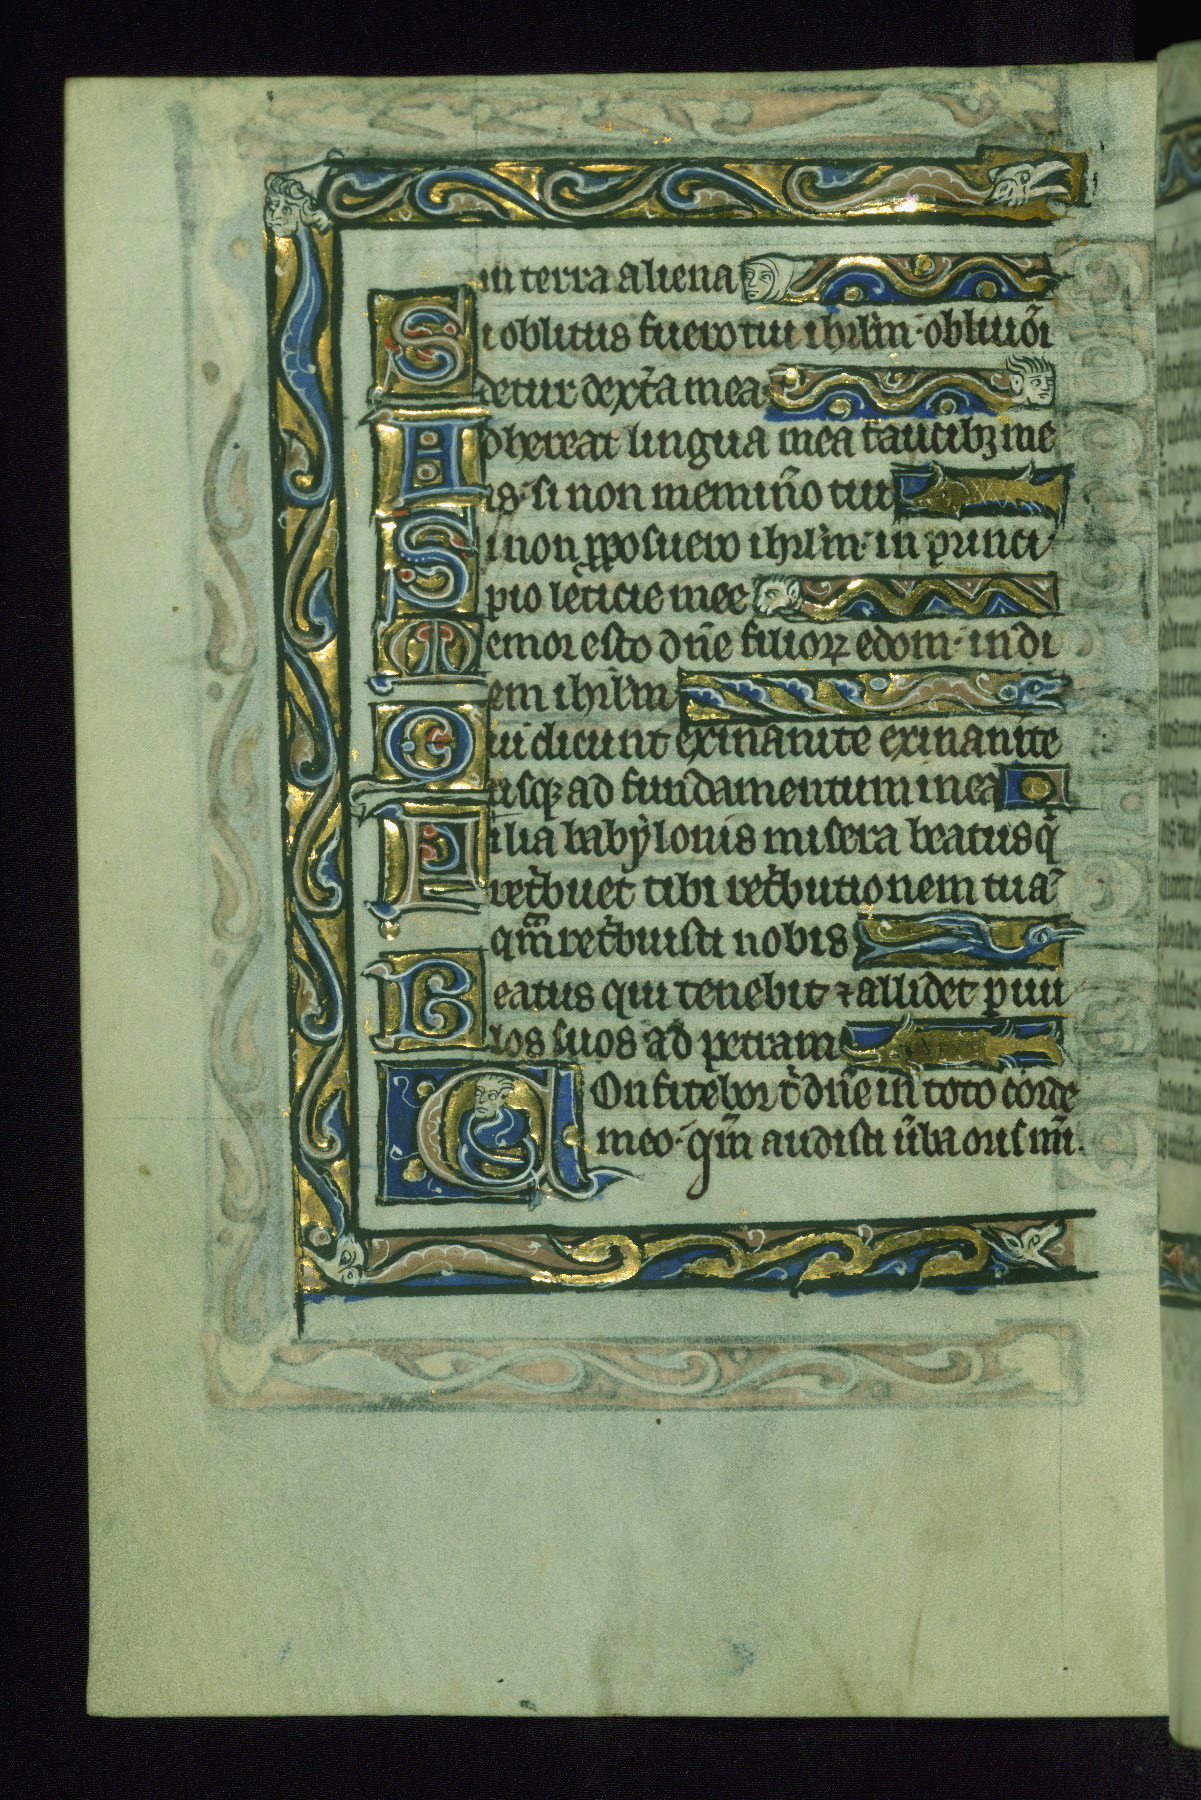 in terra aliena
Si oblitus fuero tui ihrl̄m · obliuiōi
detur dext̄a mea
Adhereat lingua mea faucibꝫ me
is · si non memin̄o tui
Si non ꝓposuero ihrl̄m · in princi
pio lēticie mee
Memor esto dn̄e filioꝝ edom · in di
em ihrl̄m
Qui dicunt exinanite exinanite
usqꝫ ad fundamentum in ea
Filia babẏlonis misera beatus qⁱ
ret̄buet tibi ret̄butionem tuā
qᵃm ret̄buisti nobis
Beatus qui tenebit ⁊ allidet paruu
los suos ad petram
COnfitebor tⁱ dn̄e in toto corde
meo · qm̄ audisti ūba oris mī ·